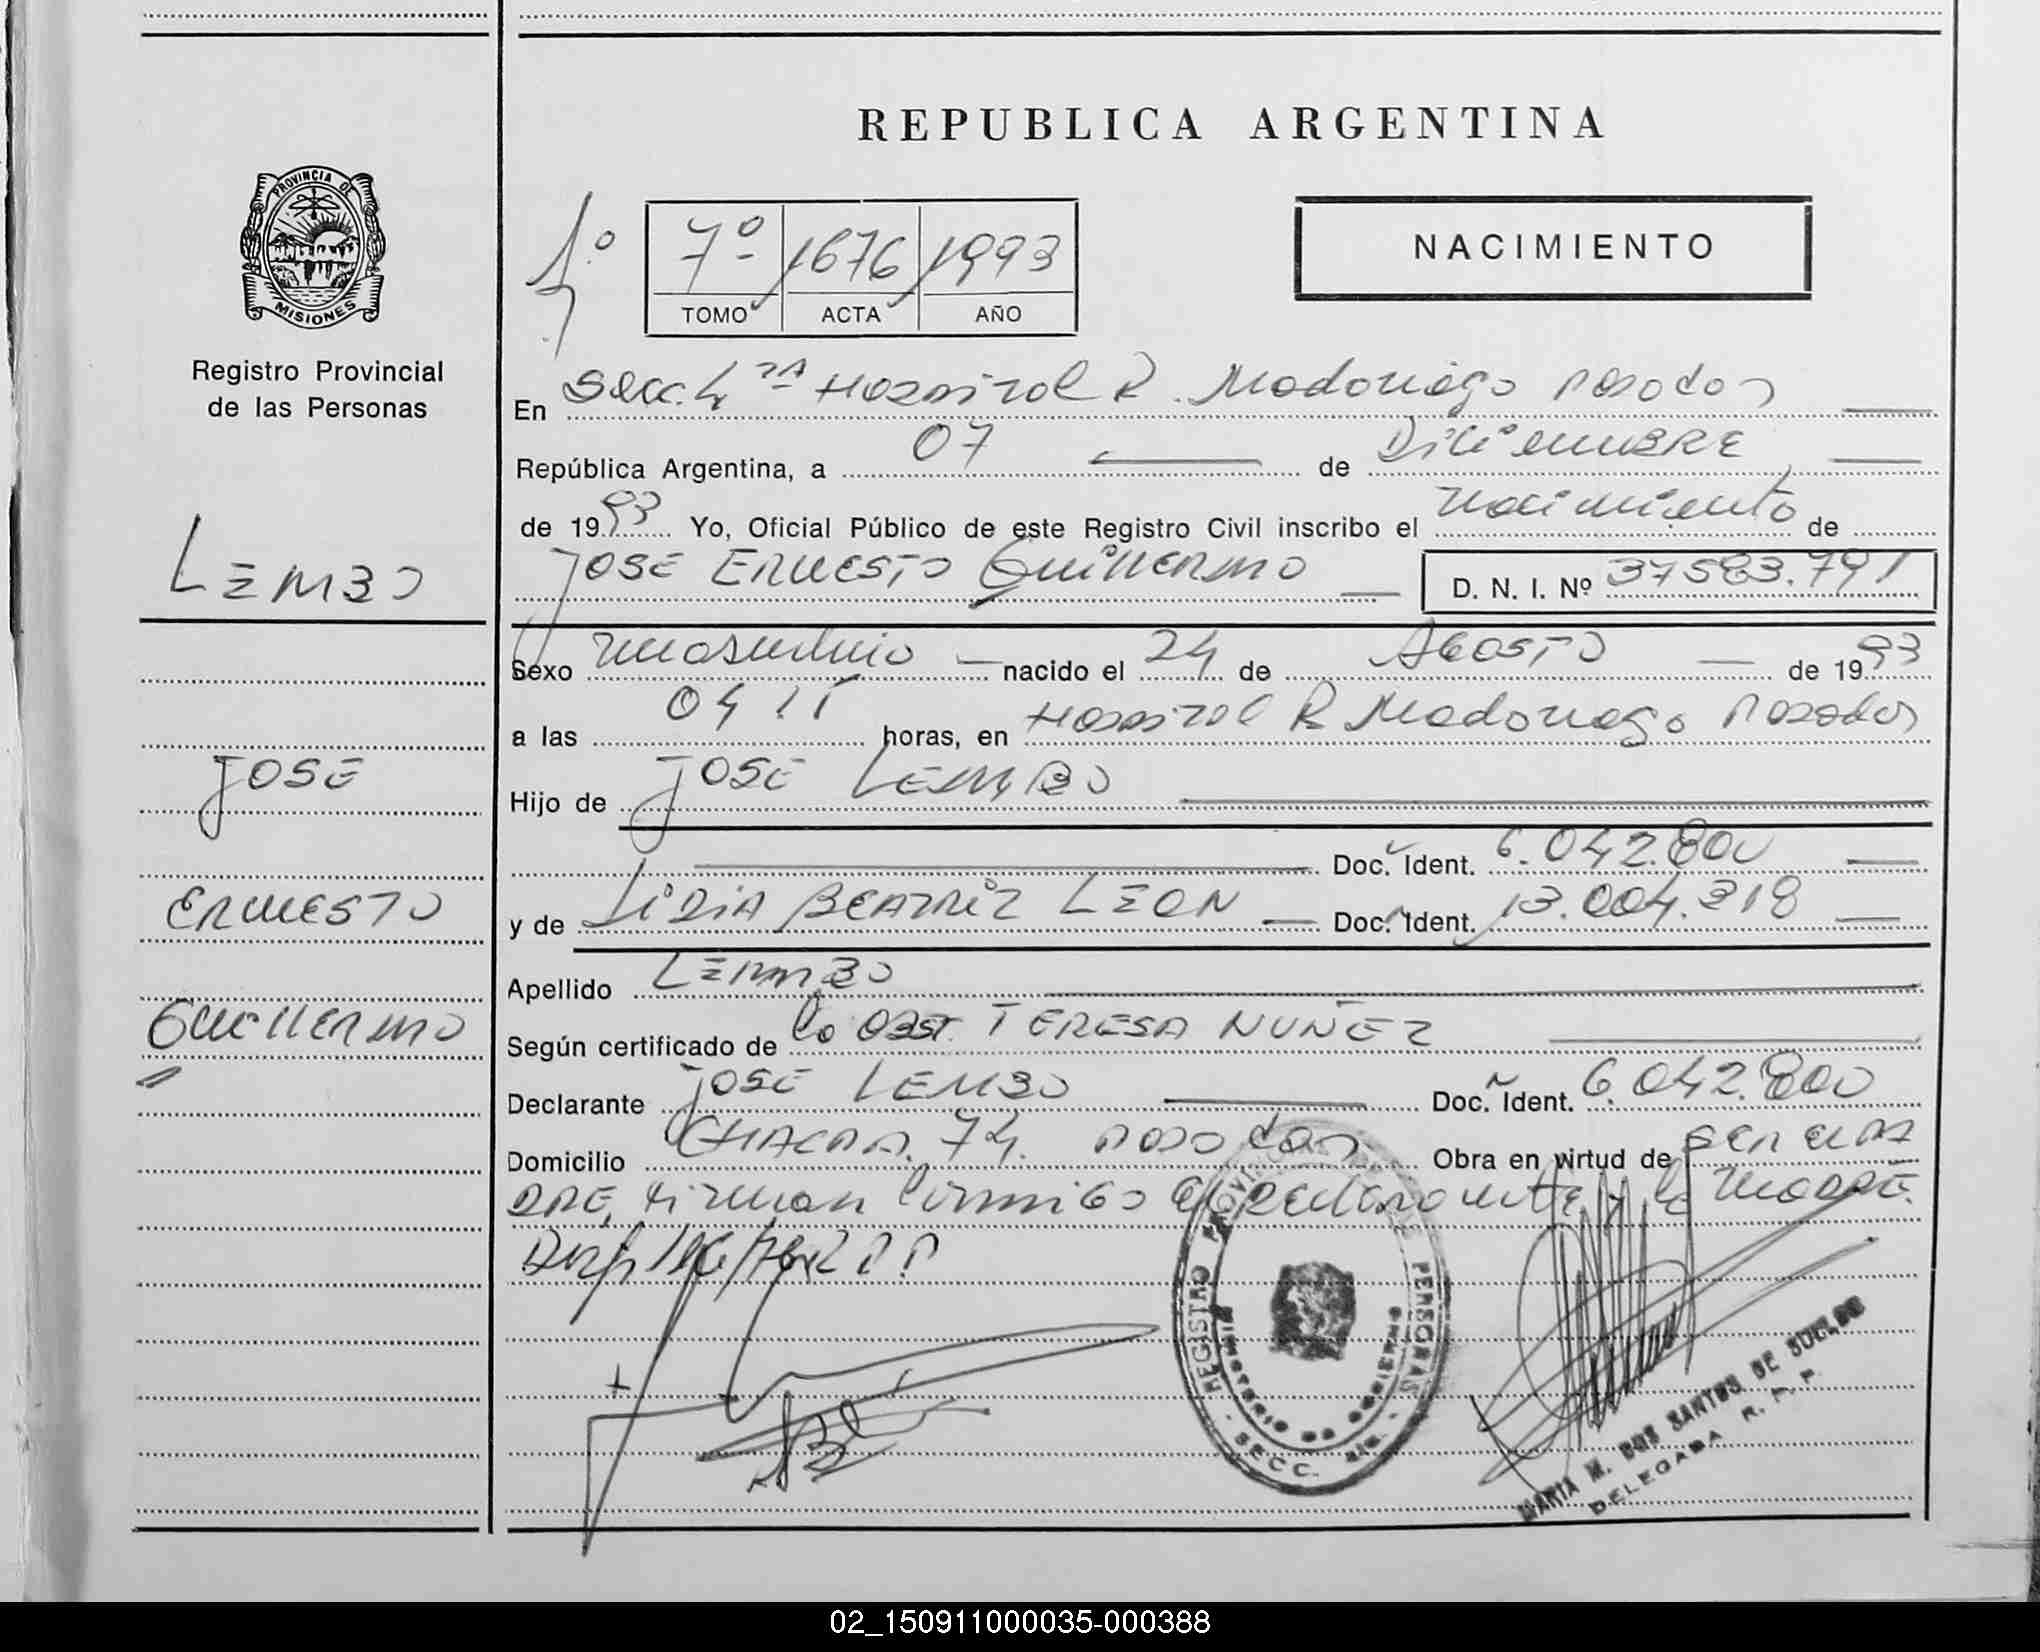 REPUBLICA ARGENTINA
PROVINCIA DE
MISIONES
Registro Provincial
de las Personas
1º
7º 1676 1993
TOMO ACTA AÑO
NACIMIENTO
En Secc. 4ta Hospital R. Madariaga Posadas
República Argentina, a 07 de Diciembre
de 1993 Yo, Oficial Público de este Registro Civil inscribo el nacimiento de
JOSE ERNESTO GUILLERMO D. N. I. Nº 37583.791
LEMBO
Sexo masculino nacido el 24 de AGOSTO de 1993
a las 04 15 horas, en Hospital R Madariaga Posadas
JOSE
Hijo de JOSE LEMBO
Doc. Ident. 6.042.800
ERNESTO
y de LIDIA BEATRIZ LEON Doc. Ident. 13.004.318
Apellido LEMBO
GUILLERMO
Según certificado de la OBST. TERESA NUÑEZ
Declarante JOSE LEMBO Doc. Ident. 6.042.800
Domicilio CHACRA 74. Posadas Obra en virtud de SER EL PA
DRE, firman conmigo el declarante y la MADRE.
REGISTRO PROVINCIAL DE LAS PERSONAS
MINISTERIO DE GOBIERNO
SECC.
MARIA M. DOS SANTOS DE
DELEGADA R. P. P.
02_150911000035-000388